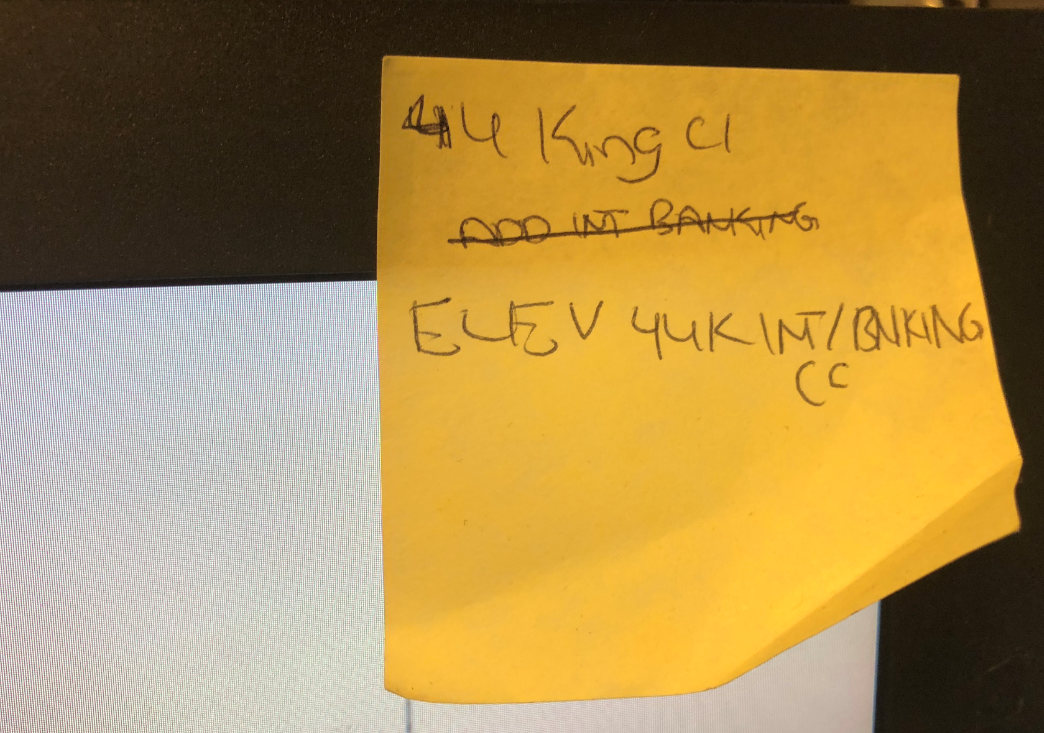 44 King Cl
ADD INT BANKING
ELEV 44K INT/BNKING
CC